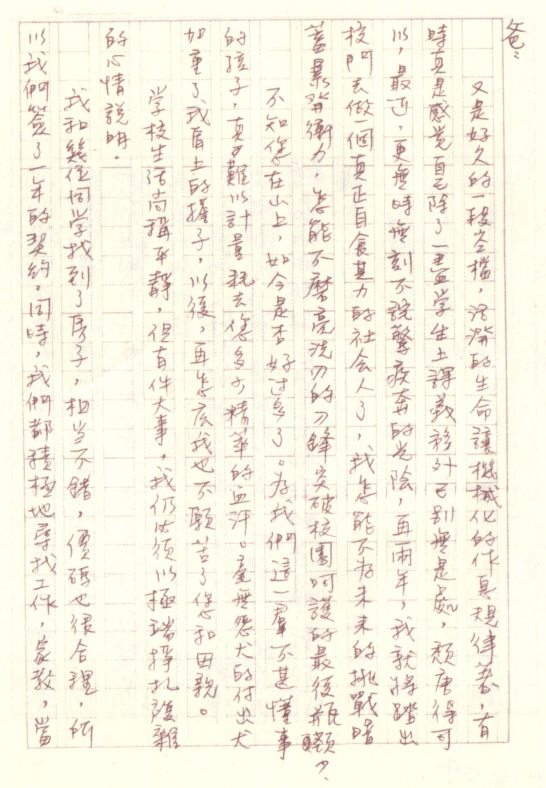 爸：
又是好久的一段空檔，活潑的生命讓機械化的作息規律著，有
時真是感覺自己除了一盡學生上課義務外已別無是處，頹唐得可
以，最近，更無時無刻不說驚疾奔的光陰，再兩年，我就將踏出
校門去做一個真正自食其力的社會人了，我怎能不為未來的挑戰暗
蓄暴發衝力，怎能不磨亮洗刃的刀鋒突破校園呵護的最後瓶頸？
不知您在山上，如今是否好過多了。為我們這一羣不甚懂事
的孩子，真難以計量耗去您多少精華的血汗。毫無怨尤的付出
加重了我肩上的擔子，以後，再怎麼我也不願苦了您和母親。
學校生活尚稱平靜，但有件大事，我仍必須以極端掙扎複雜
的心情說明。
我和幾位同學找到了房子，相當不錯，價碼也很合理，所
以我們簽了一年的契約。同時，我們都積極地尋找工作，家教，當